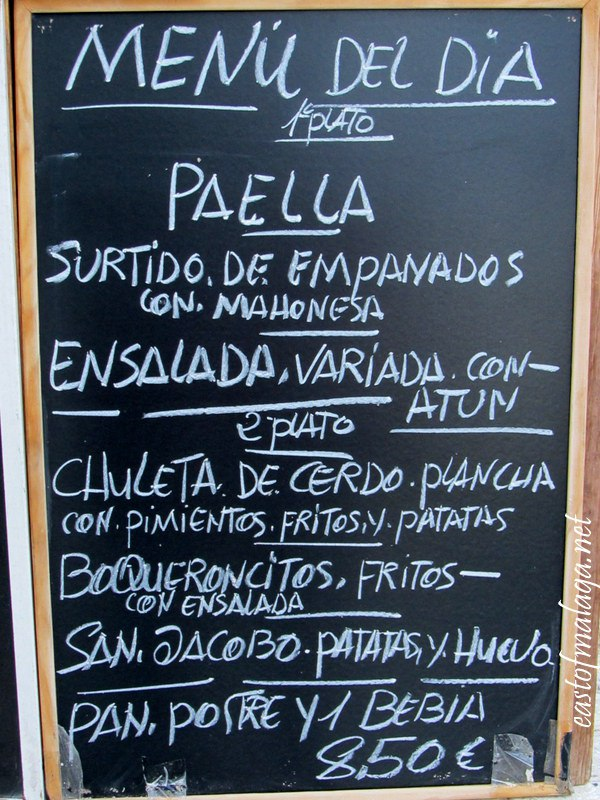 MENÚ DEL DÍA
1º PLATO
PAELLA
SURTIDO. DE EMPANADOS
CON. MAHONESA
ENSALADA. VARIADA. CON-
ATUN
2 PLATO
CHULETA. DE CERDO. PLANCHA
CON. PIMIENTOS. FRITOS, Y. PATATAS
BOQUERONCITOS. FRITOS-
CON ENSALADA
SAN. JACOBO. PATATAS, Y HUEVO
PAN. POSTRE Y 1 BEBIA
8,50 €
eastofmalaga.net